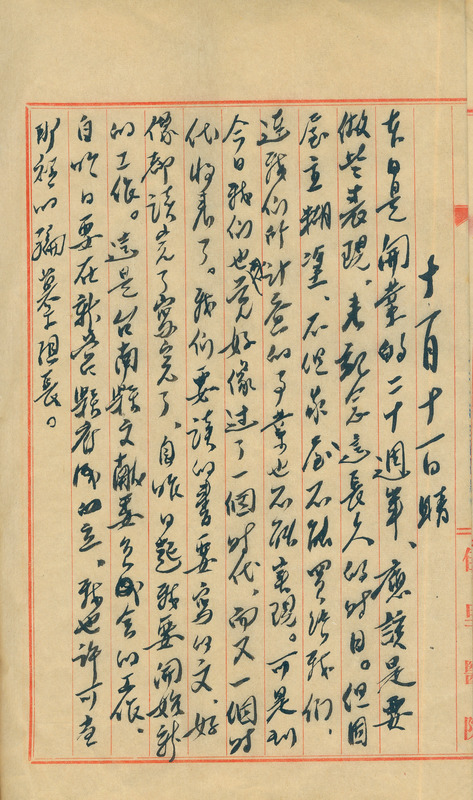 十一月十一日 晴
本日是開業的二十週年、應該是要
做些表現、来紀念這長久的時日。但因
屋主糊塗、不但家屋不能買給我們、
連我們所計畫的事業也不能実現。可是到
今日我們也覚好像过了一個时代、而又一個时
代将来了。我们要讀的書要寫的文、好
像都讀完了寫完了、自昨日起我要開始新
的工作。這是台南縣文献委員会的工作、
自昨日要在新营縣府成立。我也許可查
所謂的編纂組長。